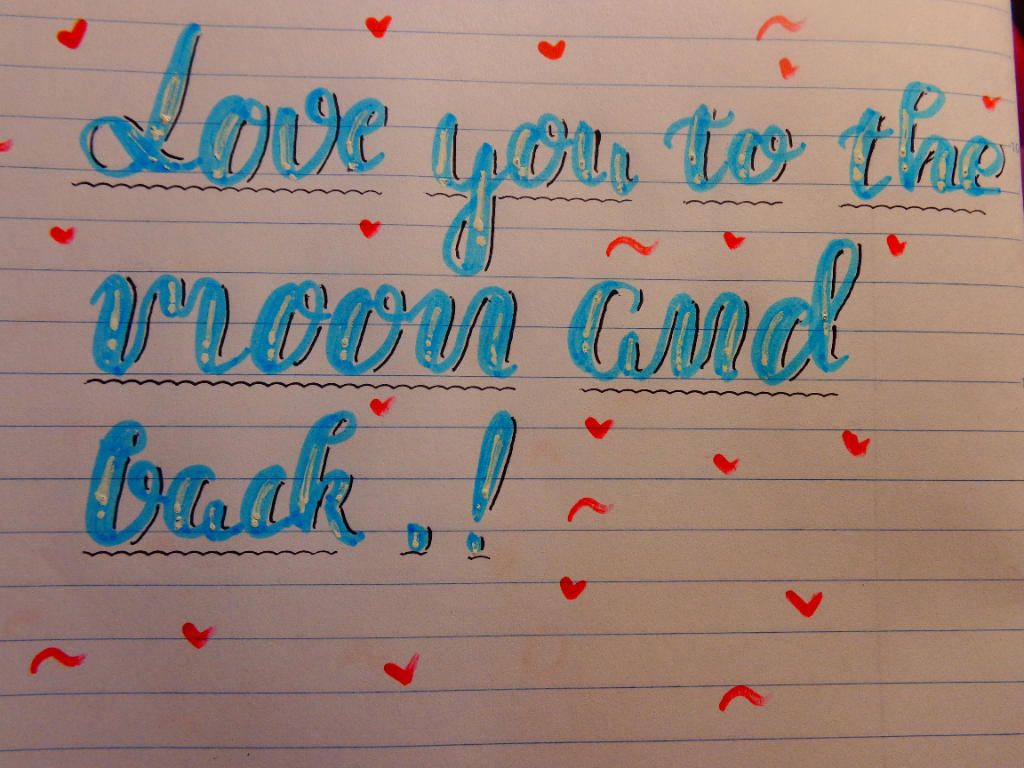 Love you to the
moon and
back . !